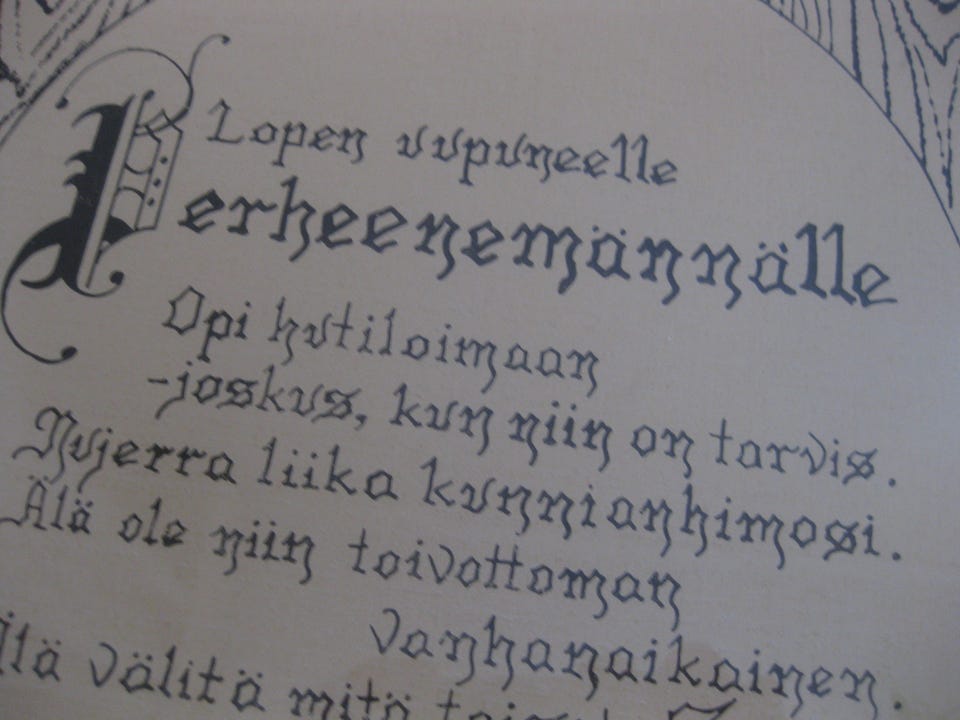 Lopen uupuneelle
Perheenemännälle
Opi hutiloimaan
-joskus, kun niin on tarvis.
Nujerra liika kunnianhimosi.
Älä ole niin toivottoman
vanhanaikainen.
Älä välitä mitä